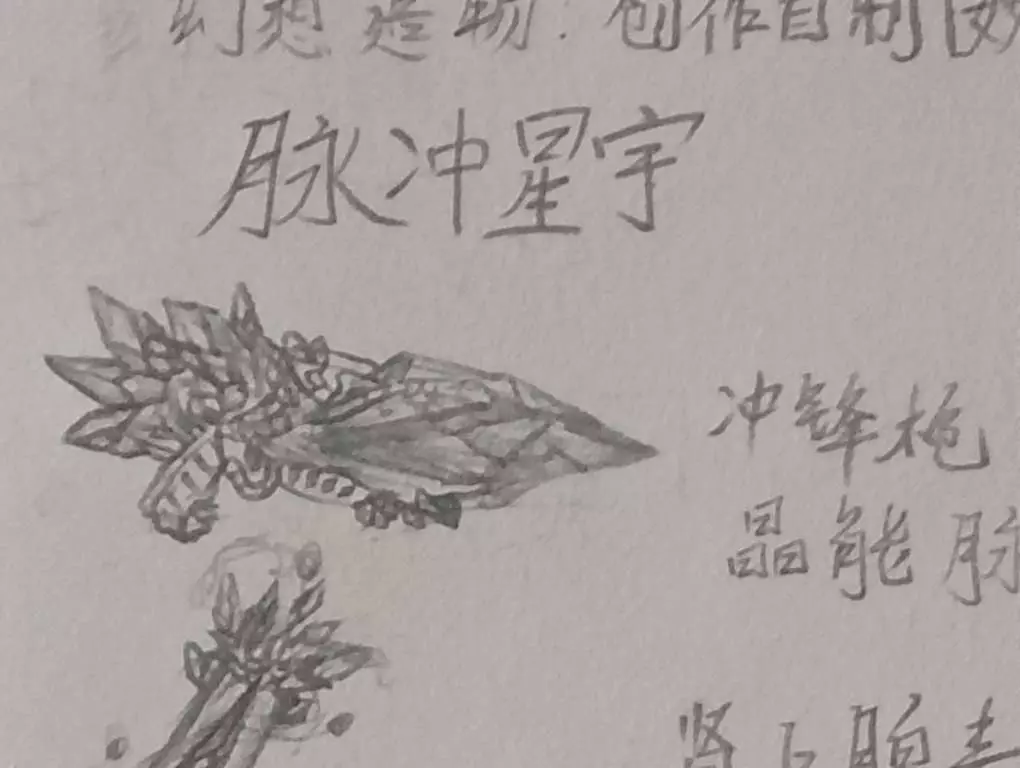 幻想造物:创作自制
脉冲星宇
冲锋枪
晶能脉